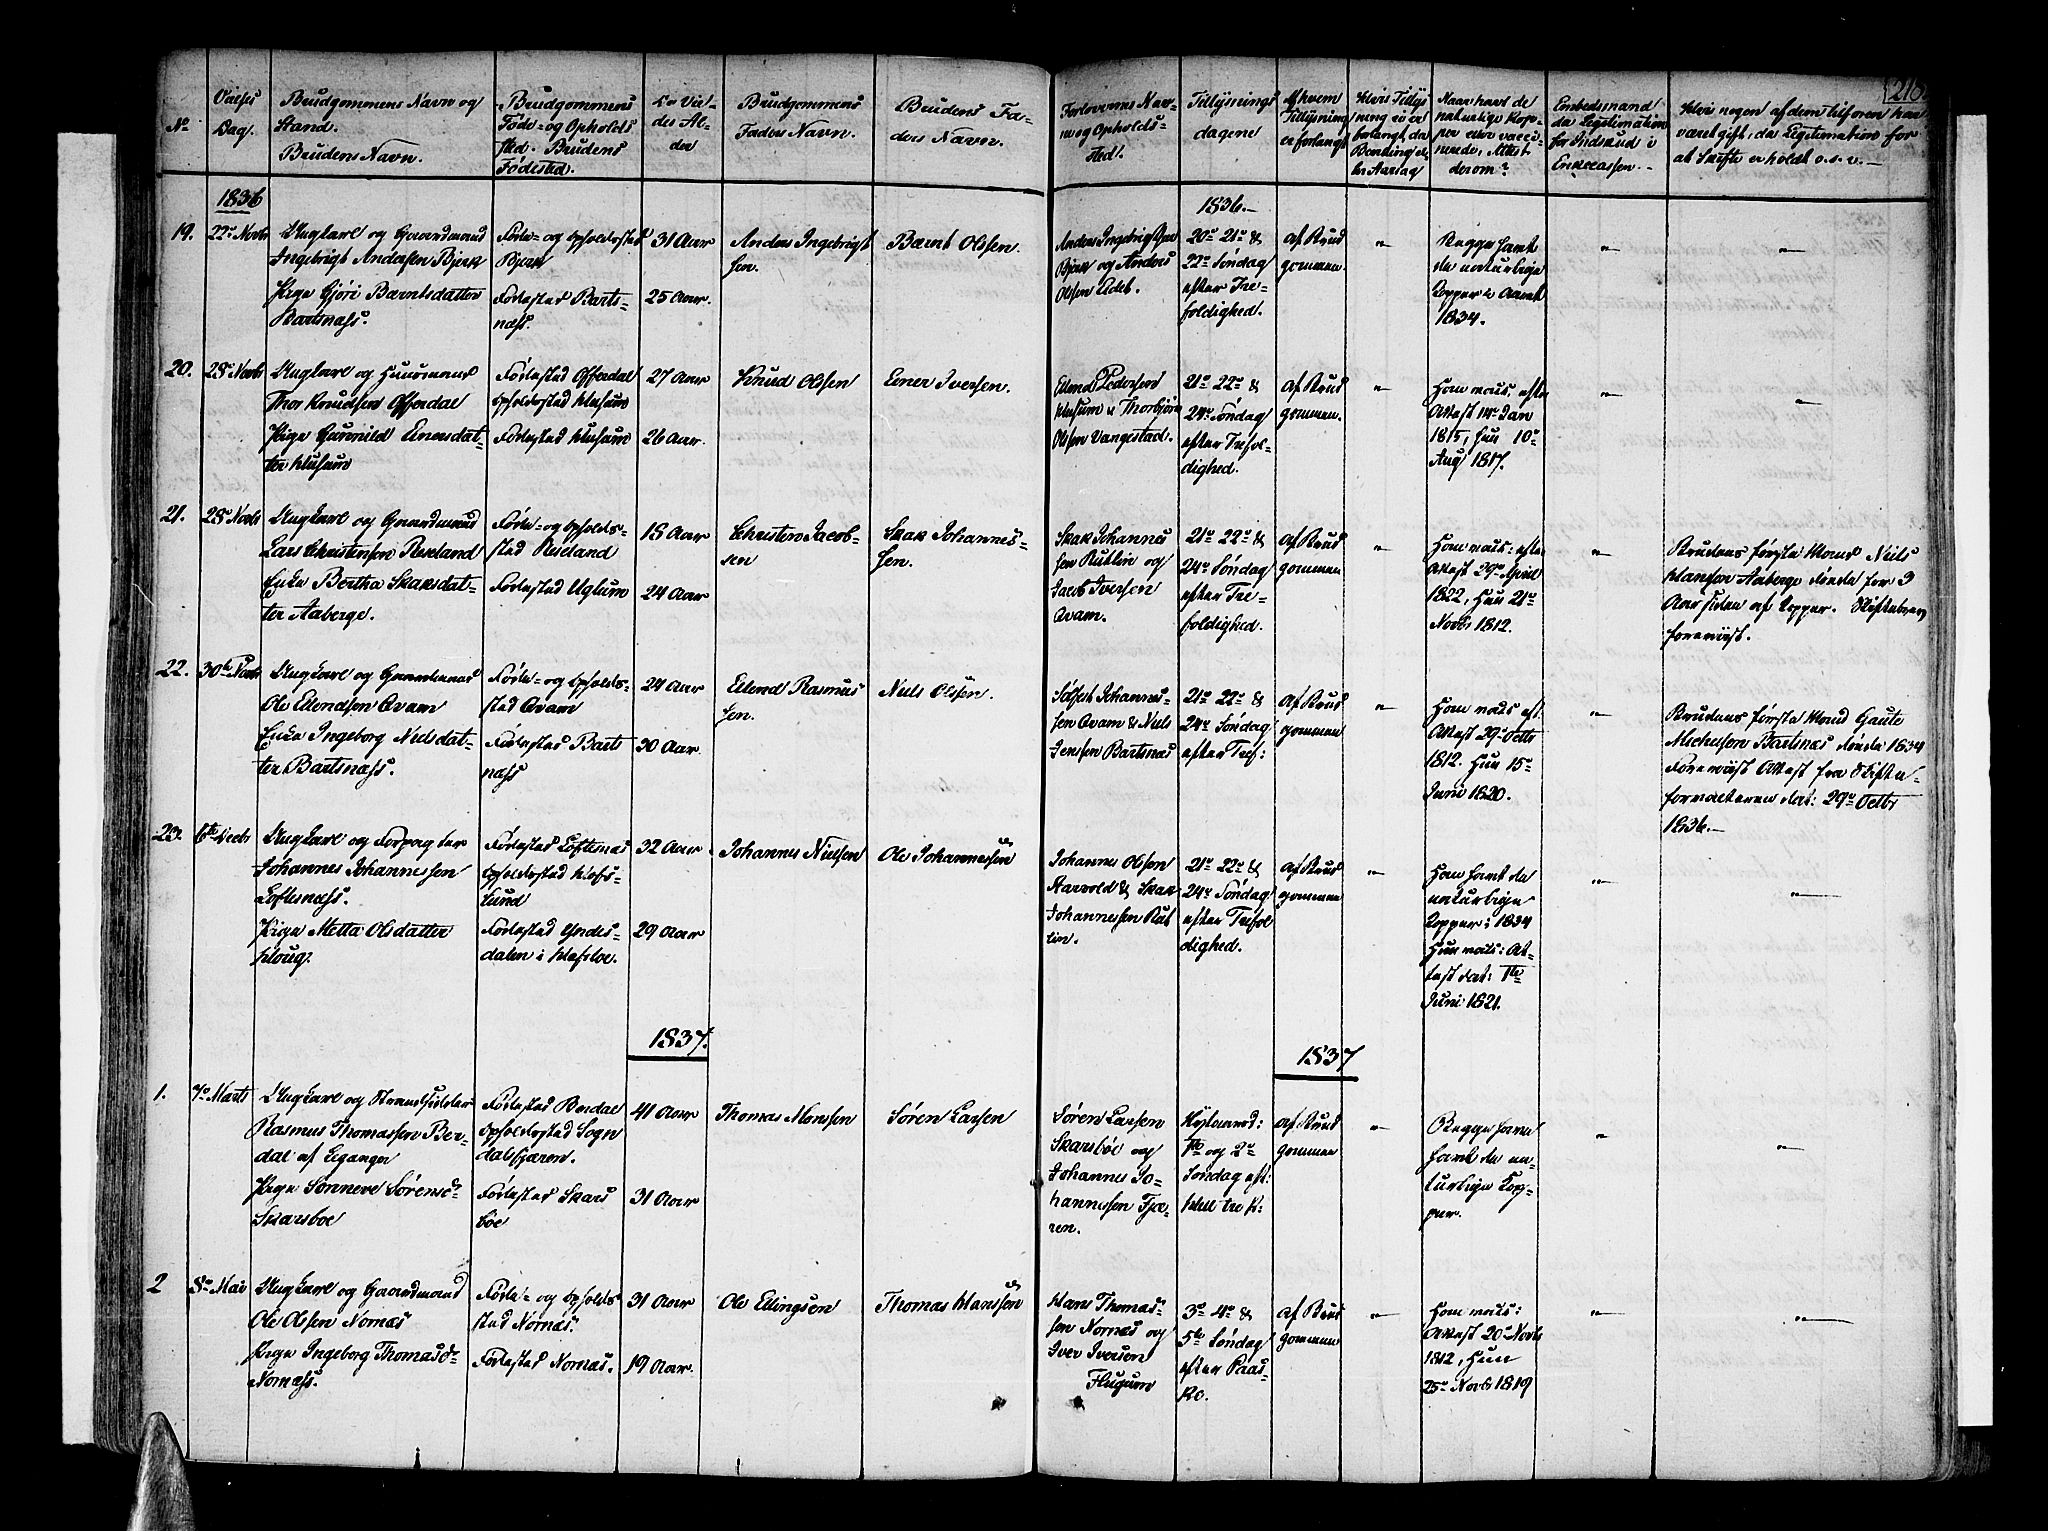 216.
No
Vielses Dag.
Brudgommens Navn og
Stand.
Brudens Navn.
Brudgommens
Føde- og Opholds
sted. Brudens
Fødested.
Brudgommens
Faders Navn.
Brudens Fa-
ders Navn.
Forlovernes Nav-
ne og Opholds-
sted.
Tillysnings
dagene
Af hvem
Tillysning
er forlangt
Hvis Tillys
ning ei er
forlangt, da
Naar havt de
naturlige Kop-
per eller vacci-
nerede, Attest
derom?
Hvis nogen af dem tilforen har
været gift, da Legitimation for
at Skifte er holdt o.s.v. —
1836
1836.—
19.
22de Novbr
Ungkarl og Gaardmand
Ingebrigt Andersen Bjerk
Pige Gjøri Berntsdatter
Bartsnæss.
Føde- og Opholdssted
Bjerk
Fødested Barts-
næss.
31 Aar
25 Aar.
Anders Ingebrigt
sen.
Bernt Olssen.
Anders Ingebrigtsen
Bjerk og Anders
Olssen
20de 21de &
22de Søndag
efter Tre-
foldighed.
af Brud
gommen.
"
Begge havt
de naturlige
Kopper i Aaret
1834.
"
"
20.
28de Novbr
Ungkarl og Huusmand
Thor Knudsen Offerdal
Pige Gunnild Enersdat-
ter Husum
Fødested Offerdal
Opholdssted Husum
Fødested Husum
27 Aar
26 Aar.
Knud Olssen
Ener Iversen.
Elend Pedersen
Husum & Thorbjørn
Olssen Vangestad.
21de 22de &
24de Søndag
efter Trefol-
dighed.
af Brud
gommen.
"
Ham vacc: efter
Attest 14de Jan
1815, Hun 10de
Aug 1817.
"
"
21.
28de Novbr
Ungkarl og Gaardmand
Lars Christensen Reseland
Enke Bertha Skaksdat-
ter Aaberge.
Føde- og Opholds-
sted Reseland
Fødested Uglum
18 Aar
24 Aar
Christen Jacob-
sen
Skak Johannes-
sen.
Skak Johannes
sen Rutlin og
Jacob Iversen
Qvam.
21de 22de &
24de Søndag
efter Tre-
foldighed.
af Brud
gommen
"
Ham vacc: efter
Attest 29de April
1822, Hun 21de
Novbr 1812.
"
Brudens første Mand Niels
Hanssen Aaberge døde for 3
Aar siden af Kopper. Skiftebrev
foreviist.
22.
30te Novbr
Ungkarl og Gaardmand
Ole Elendsen Qvam
Enke Ingeborg Nielsdat-
ter Bartsnæss.
Føde- og Opholds-
sted Qvam
Fødested Barts
næss
24 Aar
30 Aar
Elend Rasmus
sen.
Niels Olssen.
Solfest Johannes-
sen Qvam & Niels
Jenssen Bartsnæs
21de 22de &
24de Søndag
efter Tref:
af Brud
gommen
"
Ham vacc eft.
Attest 29de Octbr
1812. Hun 15de
Juni 1820.
"
Brudens første Mand Gaute
Michelsen Bartsnæs døde 1834
Foreviist Attest fra Skifte-
forvalteren dat: 29de Octbr
1836.—
23.
6te Decbr
Ungkarl og Forpagter
Johannes Johannessen
Loftesnæss.
Pige Metta Olsdatter
Houg.
Fødested Loftesnæs
Opholdssted Hofs-
lund
Fødested Yndes-
dalen i Hafsloe.
32 Aar
29 Aar
Johannes Nielsen
Ole Johannessen
Johannes Olssen
Aarvold & Skak
Johannessen Rut
lin.
21de 22de &
24de Søndag
efter Trefol
dighed.
af Brud
gommen
"
Ham havt de
naturlige
Kopper i 1834
Hun vacc: At-
test dat: 1ste
Juni 1821.
"
"
1837.
1837
1.
7de Marts
Ungkarl og Strandsidder
Rasmus Thomassen Ber-
dal af Leganger
Pige Sønneve Sørensd.
Skarsbøe
Fødested Berdal
Opholdssted Sogn
dalsfjæren.
Fødested Skars
bøe
41 Aar
31 Aar
Thomas Monssen
Søren Larsen
Søren Larsen
Skarsbøe og
Johannes Jo-
hannessen Fjæ-
ren.
1ste og 2den
Søndag eft:
Hell. tre K:
af Brud
gommen
"
Begge have
havt de na-
turlige Kop-
per.
"
"
2
8de Mai
Ungkarl og Gaardmand
Ole Olssen Nornæs
Pige Ingeborg Thomasd.
Nornæss.
Føde- og Opholds
sted Nornæs.
Fødested Nornæs.
31 Aar
19 Aar.
Ole Ellingsen
Thomas Hanssen
Hans Thomas-
sen Nornæs og
Iver Iversen
Flugum
3de 4de &
5te Søndag
efter Paas-
ke.
af Brud
gommen
"
Ham vacc:
Attest 20de Novbr
1812, Hun
25de Novbr 1819
"
"